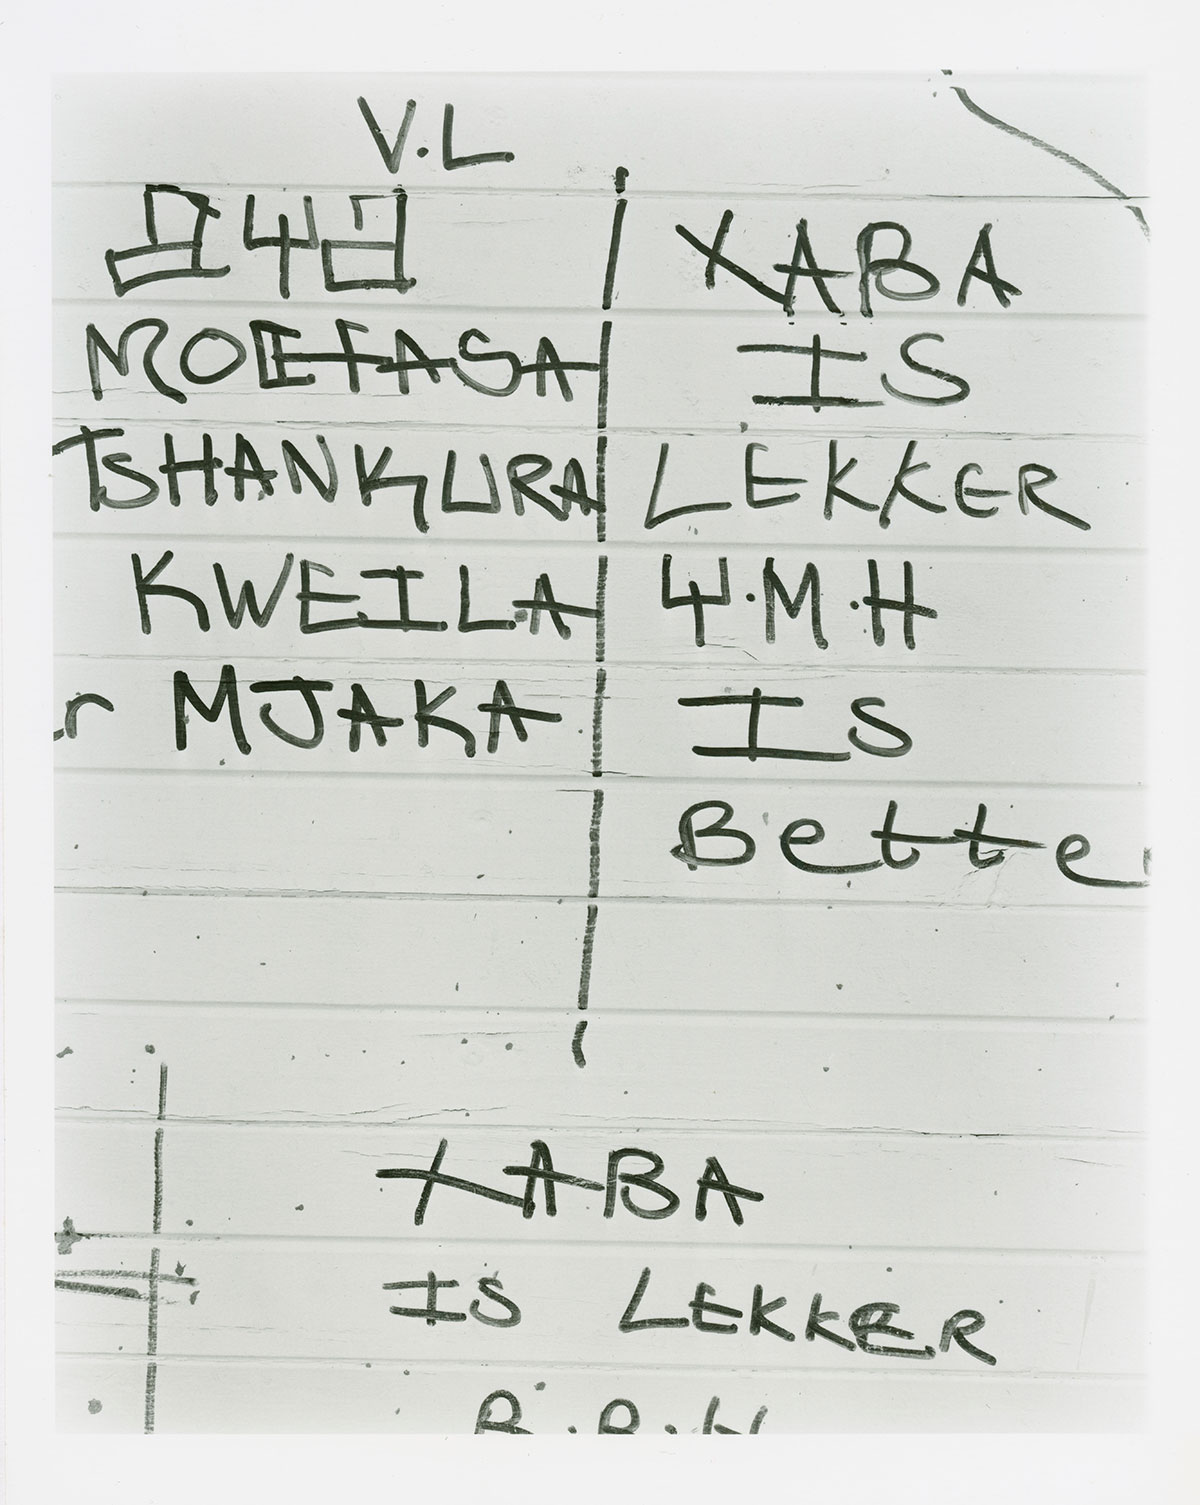 V.L
MOEFASA
TSHANKURA
KWEILA
MJAKA
XABA
IS
LEKKER
4.M.H
IS
Bette
XABA
IS LEKKER